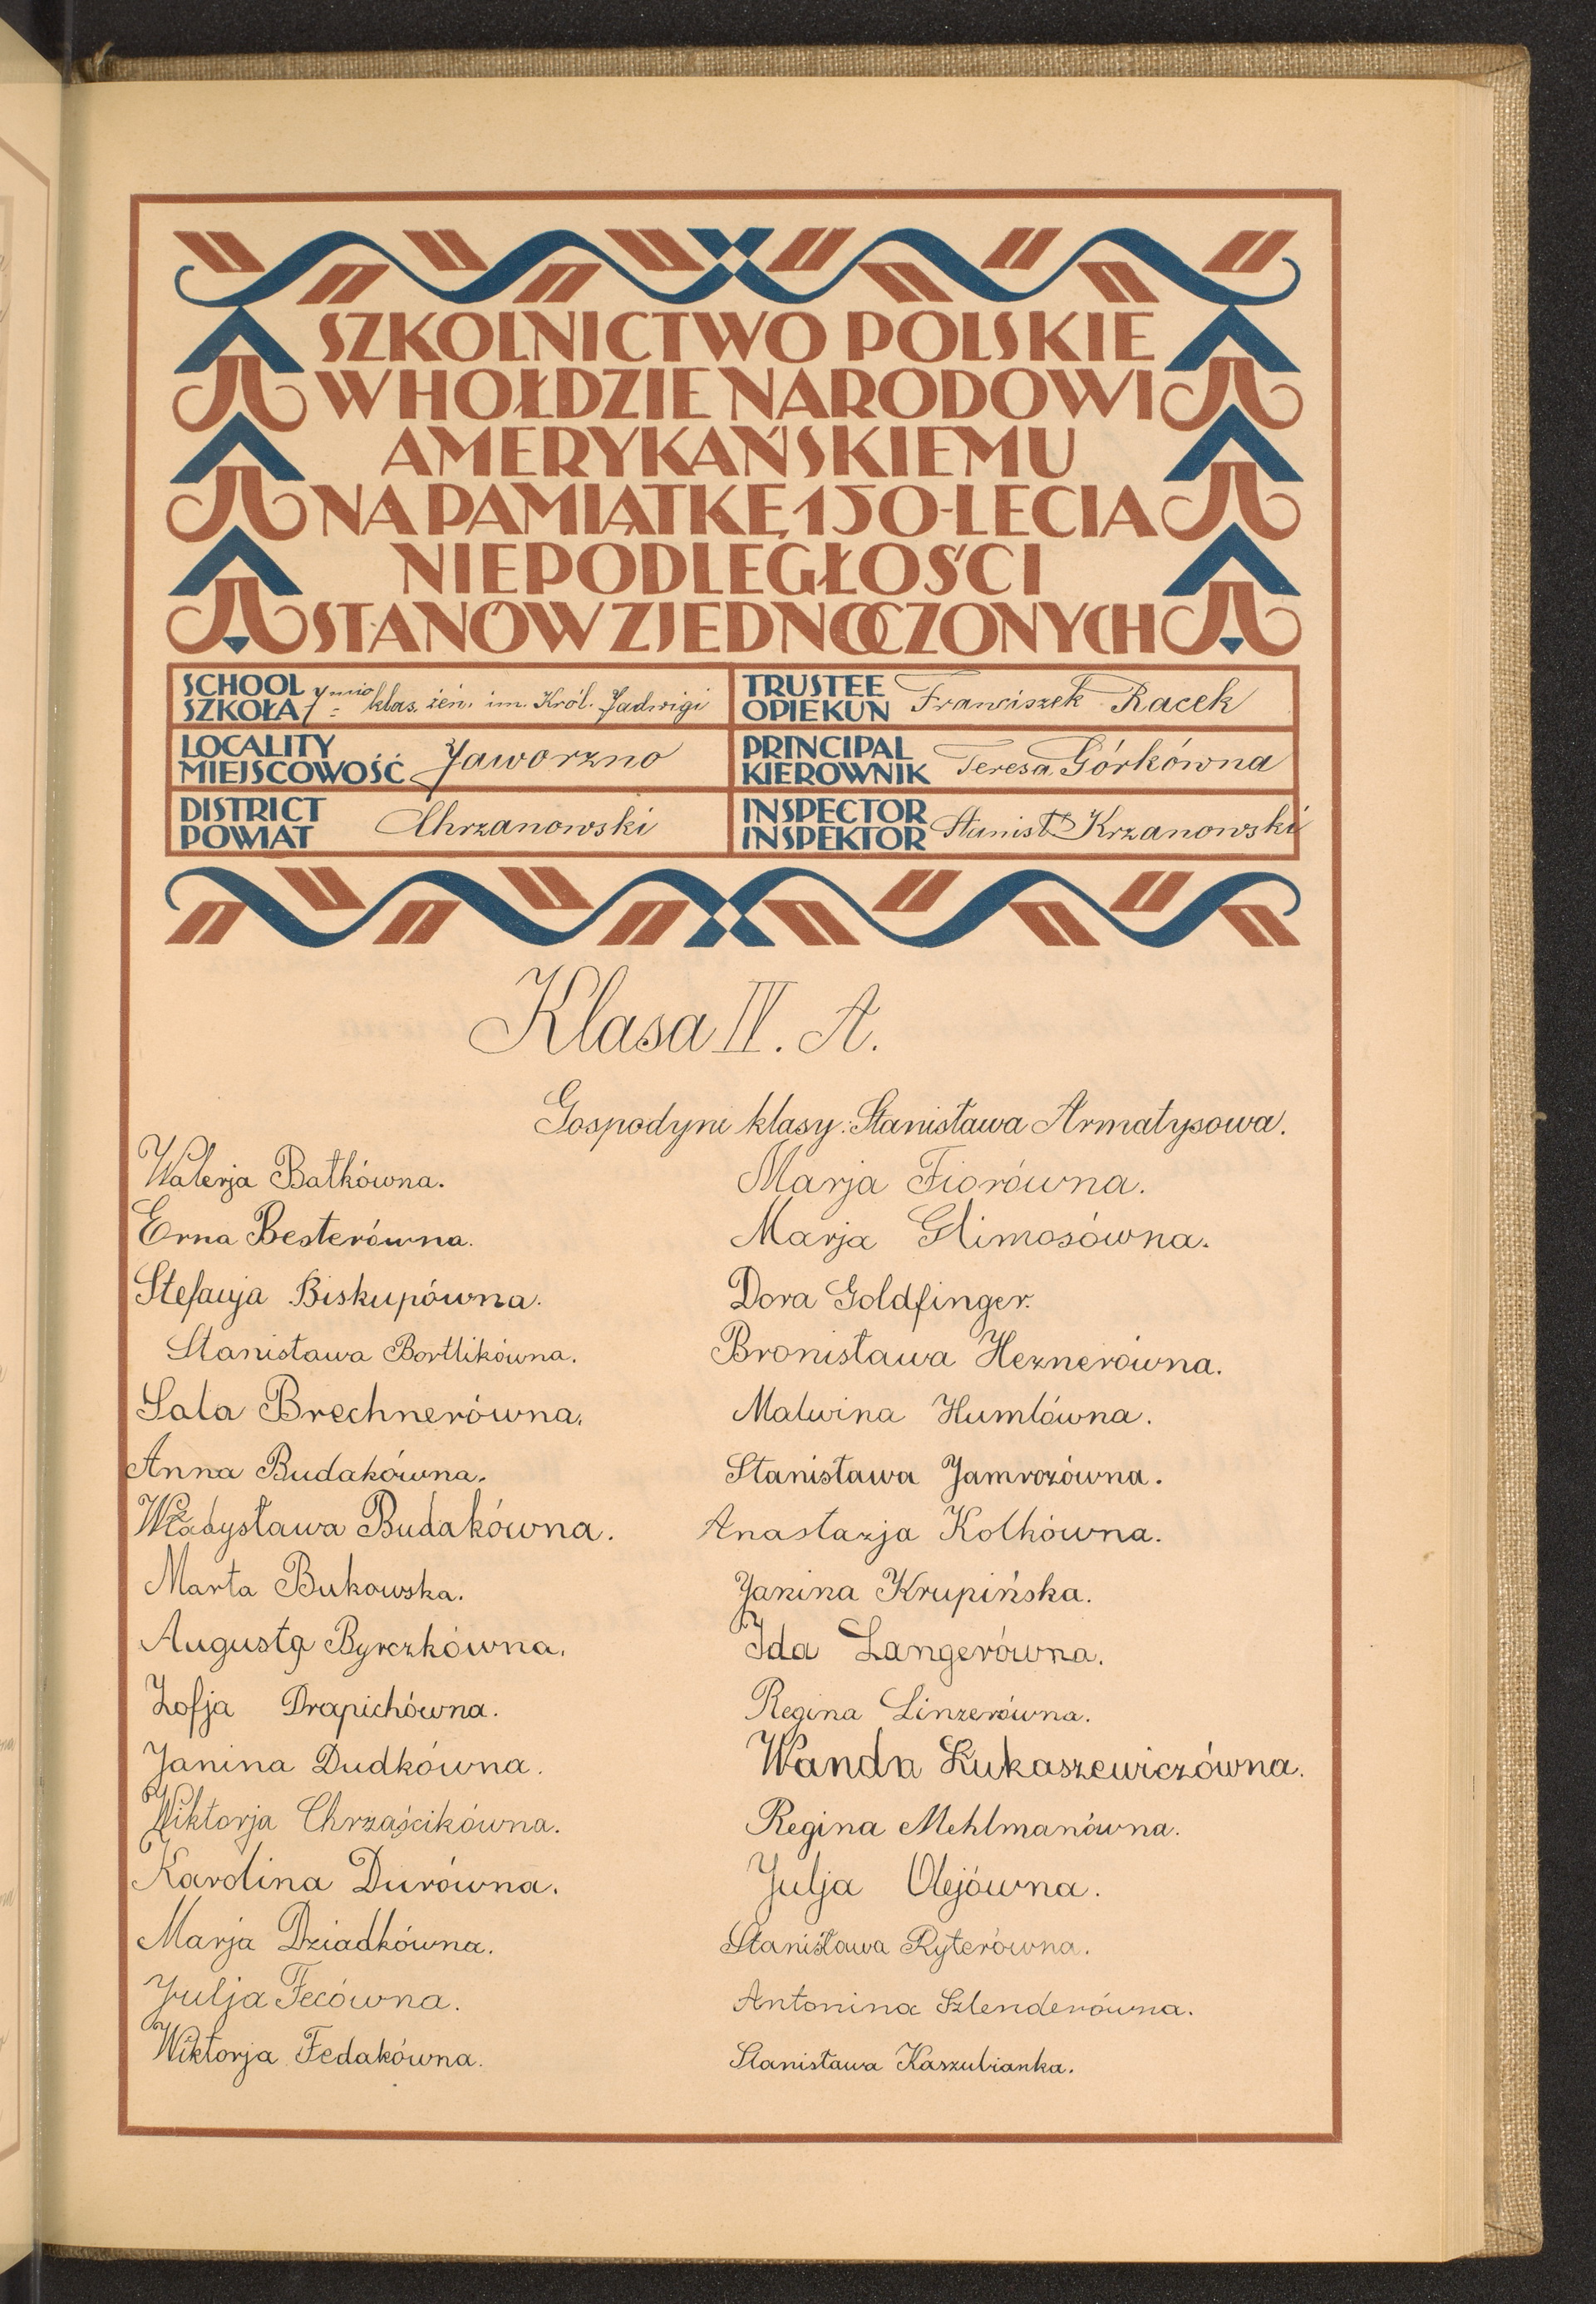 SZKOLNICTWO POLSKIE
W HOŁDZIE NARODOWI
AMERYKAŃSKIEMU
NA PAMIĄTKĘ 150-LECIA
NIEPODLEGŁOŚCI
STANÓW ZJEDNOCZONYCH
SCHOOL
SZKOŁA 7-mio klas. żeń. im. Król. Jadwigi
TRUSTEE
OPIEKUN Franciszek Racek
LOCALITY
MIEJSCOWOŚĆ Jaworzno
PRINCIPAL
KIEROWNIK Teresa Górkówna
DISTRICT
POWIAT Chrzanowski
INSPECTOR
INSPEKTOR Stanisł. Krzanowski
Klasa IV. A.
Gospodyni klasy: Stanisława Armatysowa.
Walerja Batkówna.
Erna Besterówna.
Stefanja Biskupówna.
Stanisława Bortlikówna.
Sala Brechnerówna.
Anna Budakówna.
Władysława Budakówna.
Marta Bukowska.
Augusta Byrczkówna.
Zofja Drapichówna.
Janina Dudkówna.
Wiktorja Chrząścikówna.
Karolina Durówna.
Marja Dziadkówna.
Julja Fecówna.
Wiktorja Fedakówna.
Marja Fiorówna.
Marja Glimosówna.
Dora Goldfinger.
Bronisława Heznerówna.
Malwina Humlówna.
Stanisława Jamrozówna.
Anastazja Kolkówna.
Janina Krupińska.
Ida Langerówna.
Regina Linzerówna.
Wanda Łukaszewiczówna.
Regina Mehlmanówna.
Julja Olejówna.
Stanisława Ryterówna.
Antonina Szlenderówna.
Stanisława Kaszubianka.